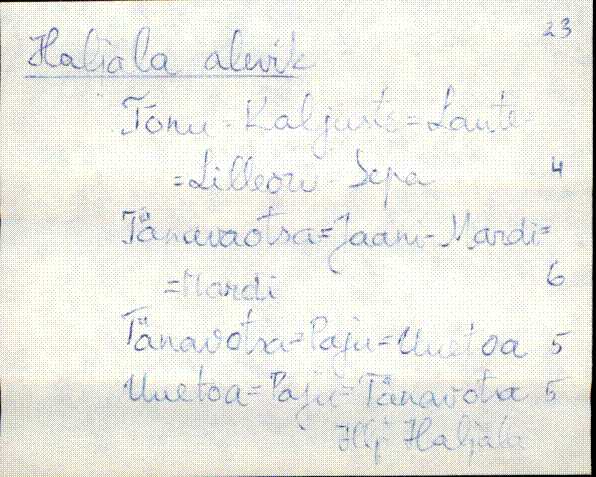 23
Haljala alevik
Tõnu - Kaljuste = Laute
= Lilleoru - Sepa 4
Tänavaotsa = Jaani - Mardi =
= Mardi 6
Tänavotsa = Paju = Uuetoa 5
Uuetoa = Paju = Tänavotsa 5
Hlj Haljala